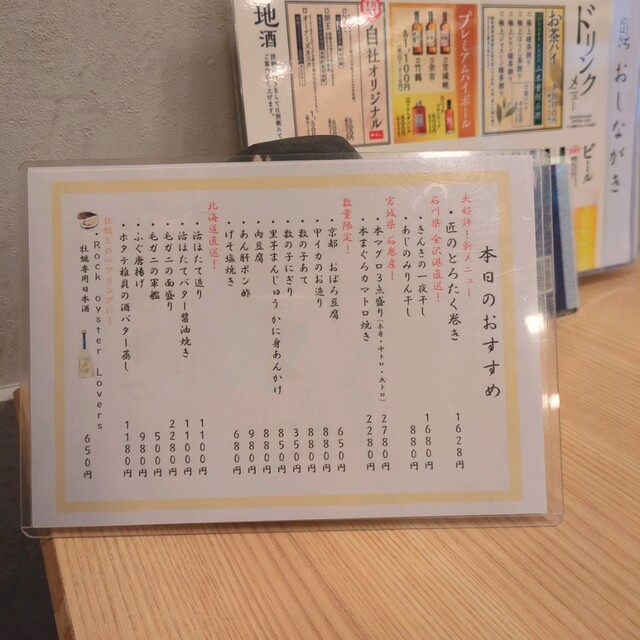 本日のおすすめ
大好評！新メニュー
・匠のとろたく巻き 1628円
石川県 金沢港直送！
・きんきの一夜干し 1680円
・あじのみりん干し 880円
宮城県 石巻産！
・本マグロ３点盛り(赤身・中トロ・大トロ) 2780円
・本まぐろカマトロ焼き 2280円
数量限定！
・京都 おぼろ豆腐 650円
・甲イカのお造り 880円
・数の子あて 880円
・数の子にぎり 350円
・里子まんじゅうかに身あんかけ 850円
・肉豆腐 880円
・あん肝ポン酢 980円
・げそ塩焼き 680円
北海道直送！
・活ほたて造り 1100円
・活ほたてバター醤油焼き 1100円
・毛ガニの面盛り 2280円
・毛ガニの軍艦 500円
・ふぐ唐揚げ 980円
・ホタテ稚貝の酒バター蒸し 1180円
牡蠣とのペアリングに！
Rock oyster Lovers
牡蠣専用日本酒 650円
おしながき
ドリンク
メニュー
ビール
お茶ハイ
プレミアムハイボール
自社オリジナル
地酒